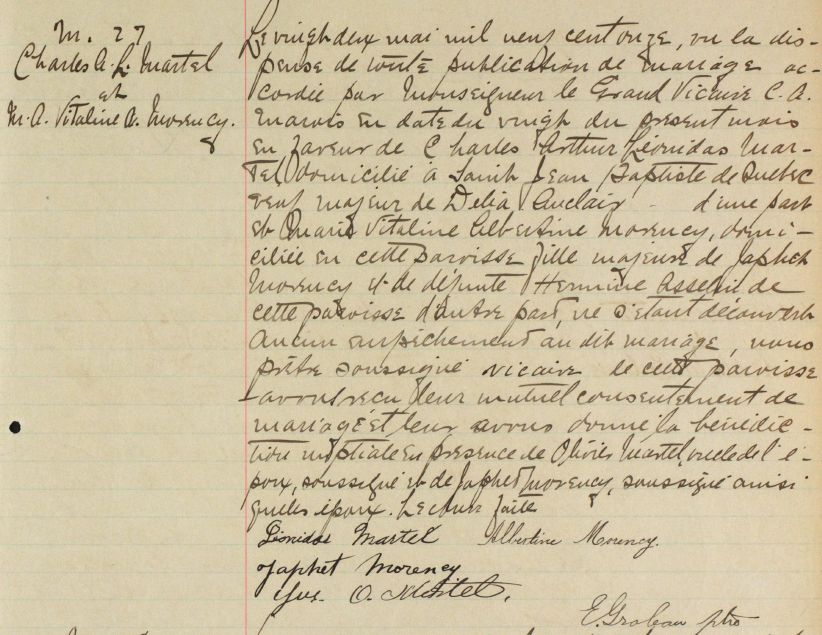 M. 27
Charles A. L. Martel
et
M. A. Vitaline A. Morency.
Le vingt deux mai mil neuf cent onze, vu la dis-
pense de toute publication de mariage ac-
cordée par Monseigneur le Grand Vicaire C. A.
Marois en date du vingt du present mois
en faveur de Charles Arthur Léonidas Mar-
tel, domicilié à Saint Jean Baptiste de Quebec
veuf majeur de Delia Auclair - d'une part
et Marie Vitaline Albertine Morency, domi-
ciliée en cette paroisse fille majeure de Japhet
Morency et de défunte Hermine Asselin de
cette paroisse d'autre part, ne s'étant découvert
aucun empêchement au dit mariage, nous
prêtre soussigné vicaire de cette paroisse
avons reçu leur mutuel consentement de
mariage et leur avons donné la bénédic-
tion nuptiale en presence de Olivier Martel, oncle de l'é-
poux, soussigné et de Japhet Morency, soussigné ainsi
que les époux. Lecture faite
Léonidas Martel Albertine Morency.
Japhet Morency
O. Martel.
E. Ptre